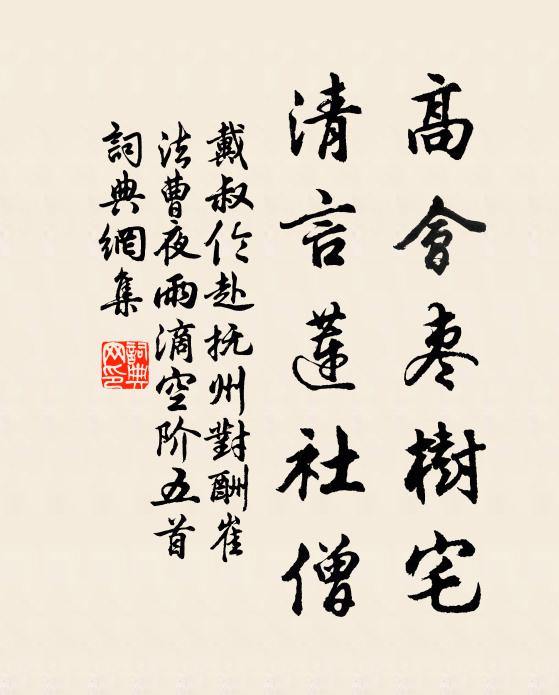 高會枣樹宅
清言蓮社僧
戴叔伦赴抚州對酬崔
法曹夜雨滴空阶五首
詞典網集
詞典网印